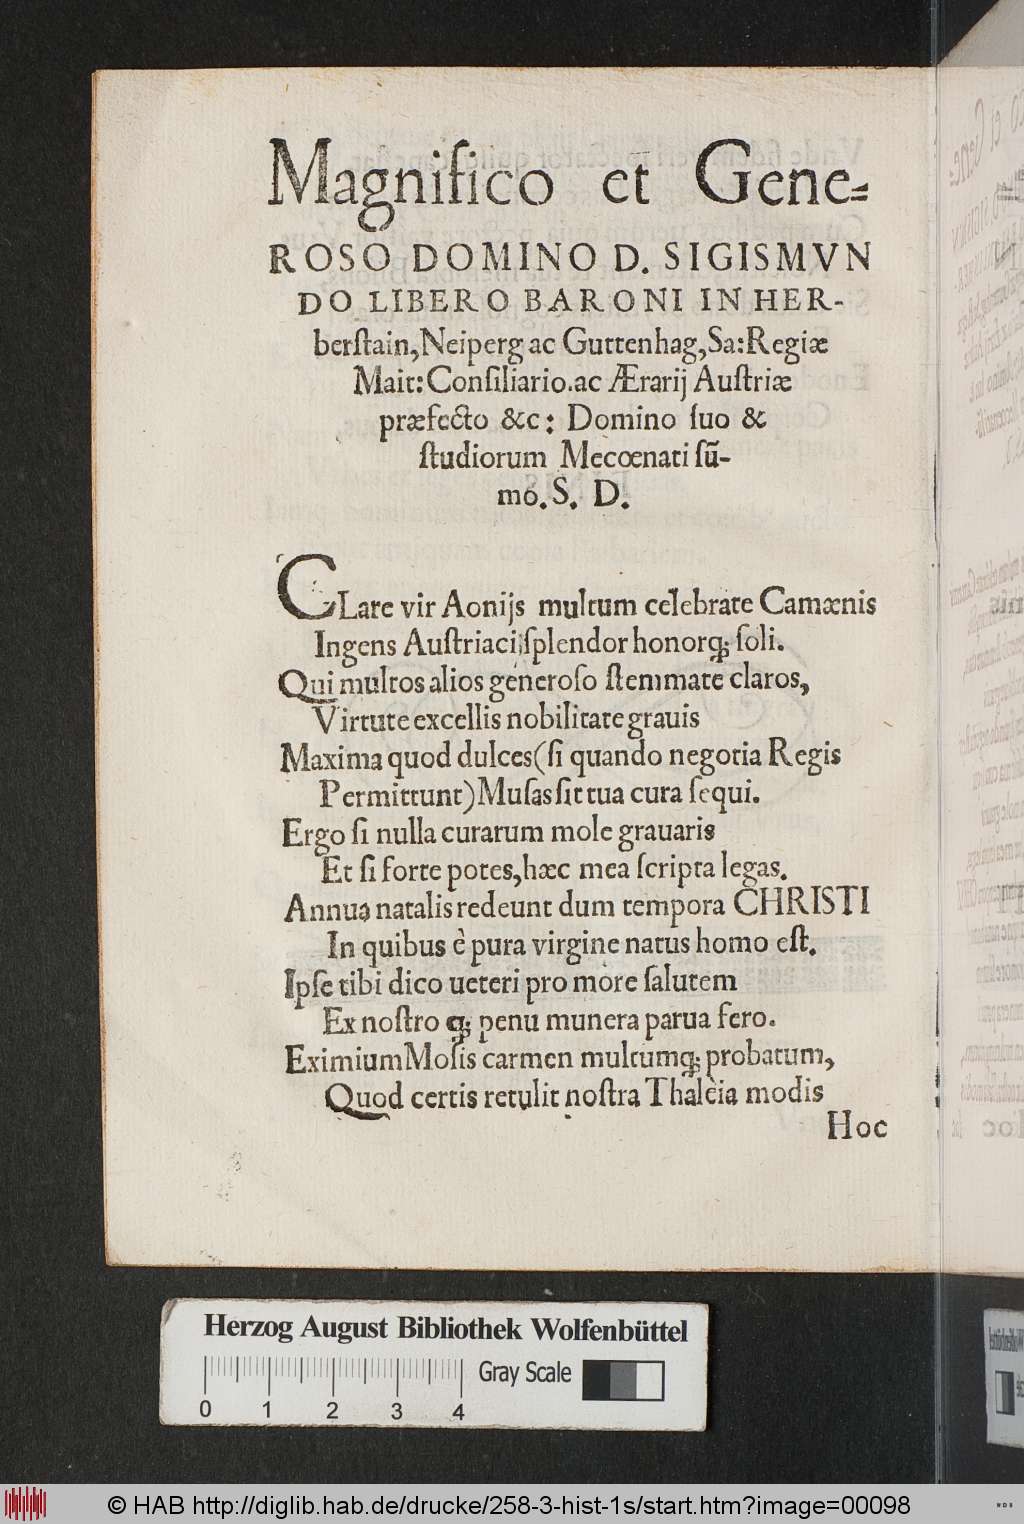 Magnifico et Gene=
ROSO DOMINO D. SIGISMVN
DO LIBERO BARONI IN HER-
berſtain, Neiperg ac Guttenhag, Sa: Regiæ
Mait: Conſiliario. ac Ærarij Auſtriæ
præfecto &c: Domino ſuo &
ſtudiorum Mecœnati ſū-
mo. S. D.
CLare vir Aonijs multum celebrate Camœnis
Ingens Auſtriaci ſplendor honorq; ſoli.
Qui multos alios generoſo ſtemmate claros,
Virtute excellis nobilitate grauis
Maxima quod dulces (ſi quando negotia Regis
Permittunt) Muſas ſit tua cura ſequi.
Ergo ſi nulla curarum mole grauaris
Et ſi forte potes, hæc mea ſcripta legas.
Annua natalis redeunt dum tempora CHRISTI
In quibus è pura virgine natus homo eſt.
Ipſe tibi dico ueteri pro more ſalutem
Ex noſtro q; penu munera parua fero.
Eximium Moſis carmen multumq; probatum,
Quod certis retulit noſtra Thalèia modis
Hoc
Herzog August Bibliothek Wolfenbüttel
Gray Scale
0 1 2 3 4
© HAB http://diglib.hab.de/drucke/258-3-hist-1s/start.htm?image=00098